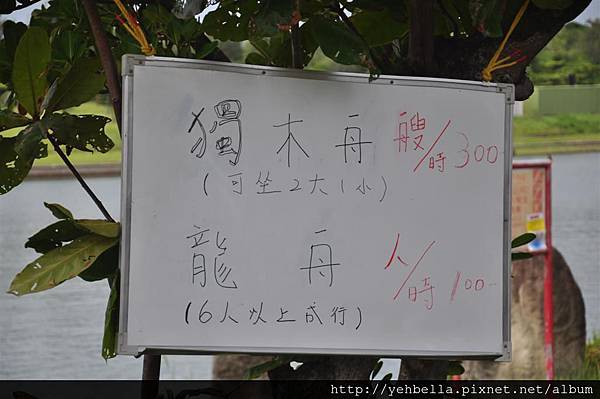 獨木舟 艘/時 300
(可坐2大1小)
龍舟 人/時 100-
(6人以上成行)
http://yehbella.pixnet.net/album